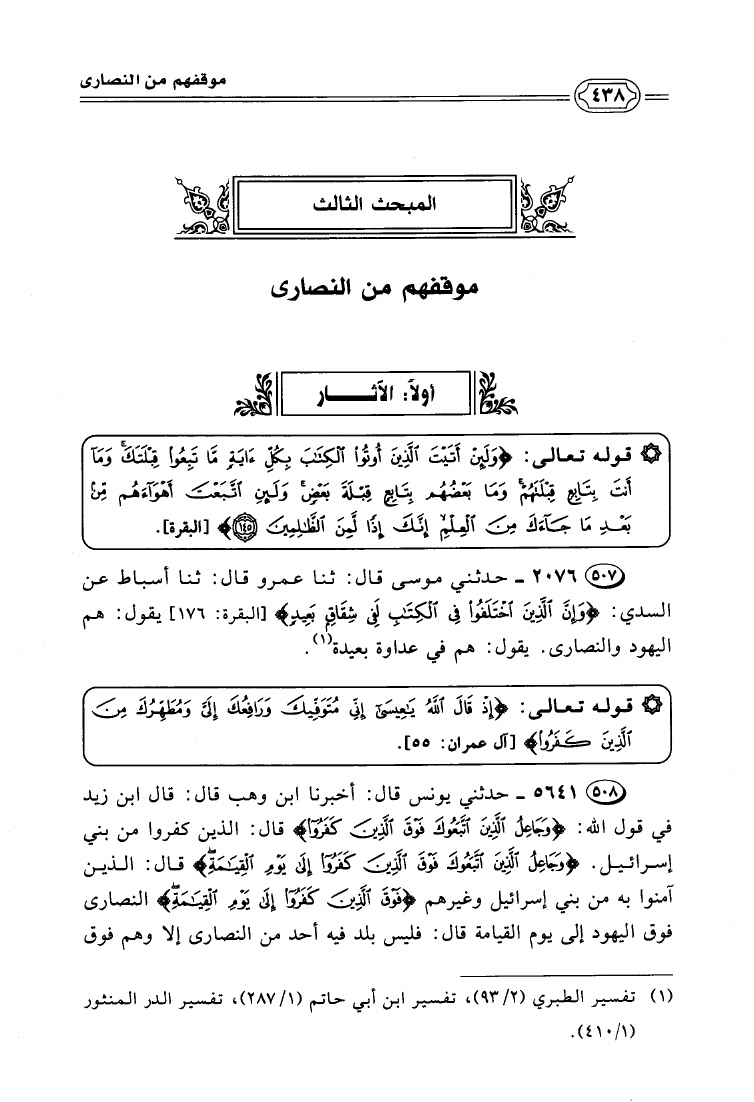 موقفهم من النصارى
٤٣٨
المبحث الثالث
موقفهم من النصارى
أولاً: الآثـــــار
۞ قوله تعالى: ﴿وَلَئِنْ أَتَيْتَ ٱلَّذِينَ أُوتُوا۟ ٱلْكِتَـٰبَ بِكُلِّ ءَايَةٍ مَّا تَبِعُوا۟ قِبْلَتَكَ ۚ وَمَا
أَنتَ بِتَابِعٍ قِبْلَتَهُمْ ۚ وَمَا بَعْضُهُم بِتَابِعٍ قِبْلَةَ بَعْضٍ ۚ وَلَئِنِ ٱتَّبَعْتَ أَهْوَآءَهُم مِّنۢ
بَعْدِ مَا جَآءَكَ مِنَ ٱلْعِلْمِ ۙ إِنَّكَ إِذًا لَّمِنَ ٱلظَّـٰلِمِينَ ١٤٥﴾ [البقرة].
٥٠٧ ٢٠٧٦ ـ حدثني موسى قال: ثنا عمرو قال: ثنا أسباط عن
السدي: ﴿وَإِنَّ ٱلَّذِينَ ٱخْتَلَفُوا۟ فِى ٱلْكِتَـٰبِ لَفِى شِقَاقٍۭ بَعِيدٍ﴾ [البقرة: ١٧٦] يقول: هم
اليهود والنصارى. يقول: هم في عداوة بعيدة(١).
۞ قوله تعالى: ﴿إِذْ قَالَ ٱللَّهُ يَـٰعِيسَىٰٓ إِنِّى مُتَوَفِّيكَ وَرَافِعُكَ إِلَىَّ وَمُطَهِّرُكَ مِنَ
ٱلَّذِينَ كَفَرُوا۟﴾ [آل عمران: ٥٥].
٥٠٨ ٥٦٤١ ـ حدثني يونس قال: أخبرنا ابن وهب قال: قال ابن زيد
في قول الله: ﴿وَجَاعِلُ ٱلَّذِينَ ٱتَّبَعُوكَ فَوْقَ ٱلَّذِينَ كَفَرُوٓا۟﴾ قال: الذين كفروا من بني
إسرائيل. ﴿وَجَاعِلُ ٱلَّذِينَ ٱتَّبَعُوكَ فَوْقَ ٱلَّذِينَ كَفَرُوٓا۟ إِلَىٰ يَوْمِ ٱلْقِيَـٰمَةِ ۖ﴾ قال: الذين
آمنوا به من بني إسرائيل وغيرهم ﴿فَوْقَ ٱلَّذِينَ كَفَرُوٓا۟ إِلَىٰ يَوْمِ ٱلْقِيَـٰمَةِ ۖ﴾ النصارى
فوق اليهود إلى يوم القيامة قال: فليس بلد فيه أحد من النصارى إلا وهم فوق
(١) تفسير الطبري (٩٣/٢)، تفسير ابن أبي حاتم (٢٨٧/١)، تفسير الدر المنثور
(٤١٠/١).